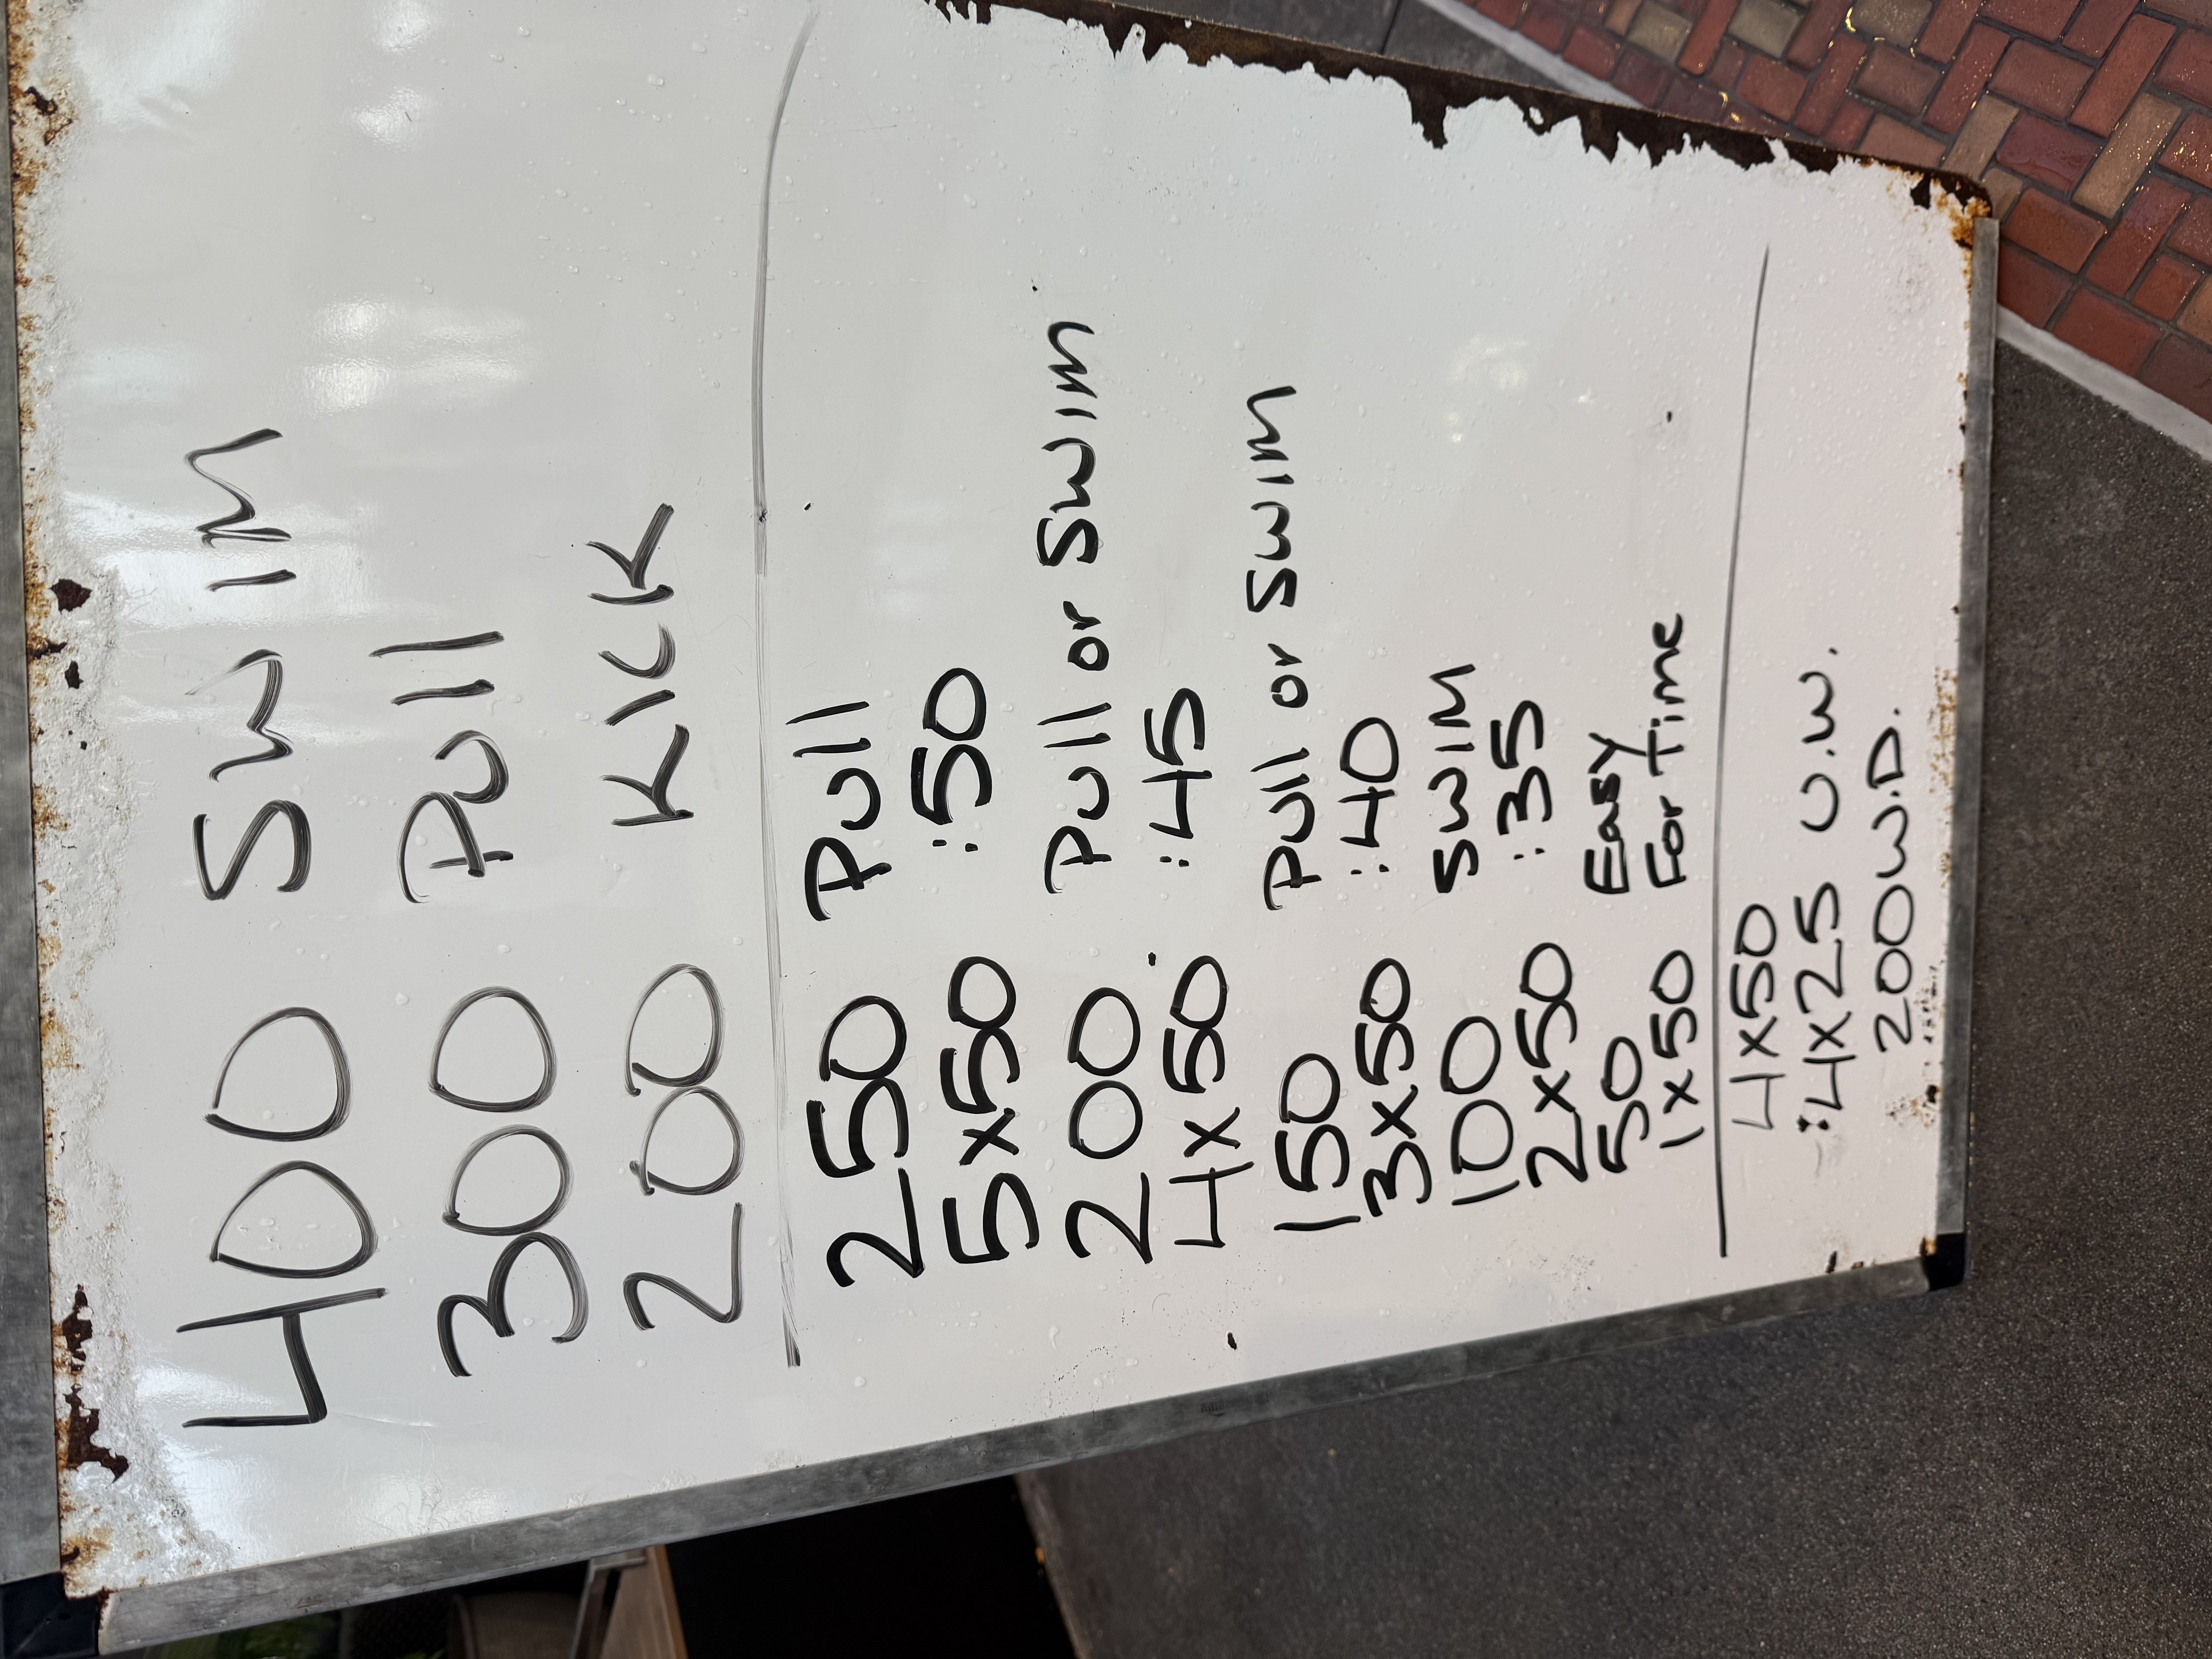 400 SWIM
300 Pull
200 KICK
250 Pull
5x50 :50
200 Pull or Swim
4x50 :45
150 Pull or Swim
3x50 :40
100 SWIM
2x50 :35
50 Easy
1x50 For Time
4x50
4x25 U.W.
200 W.D.